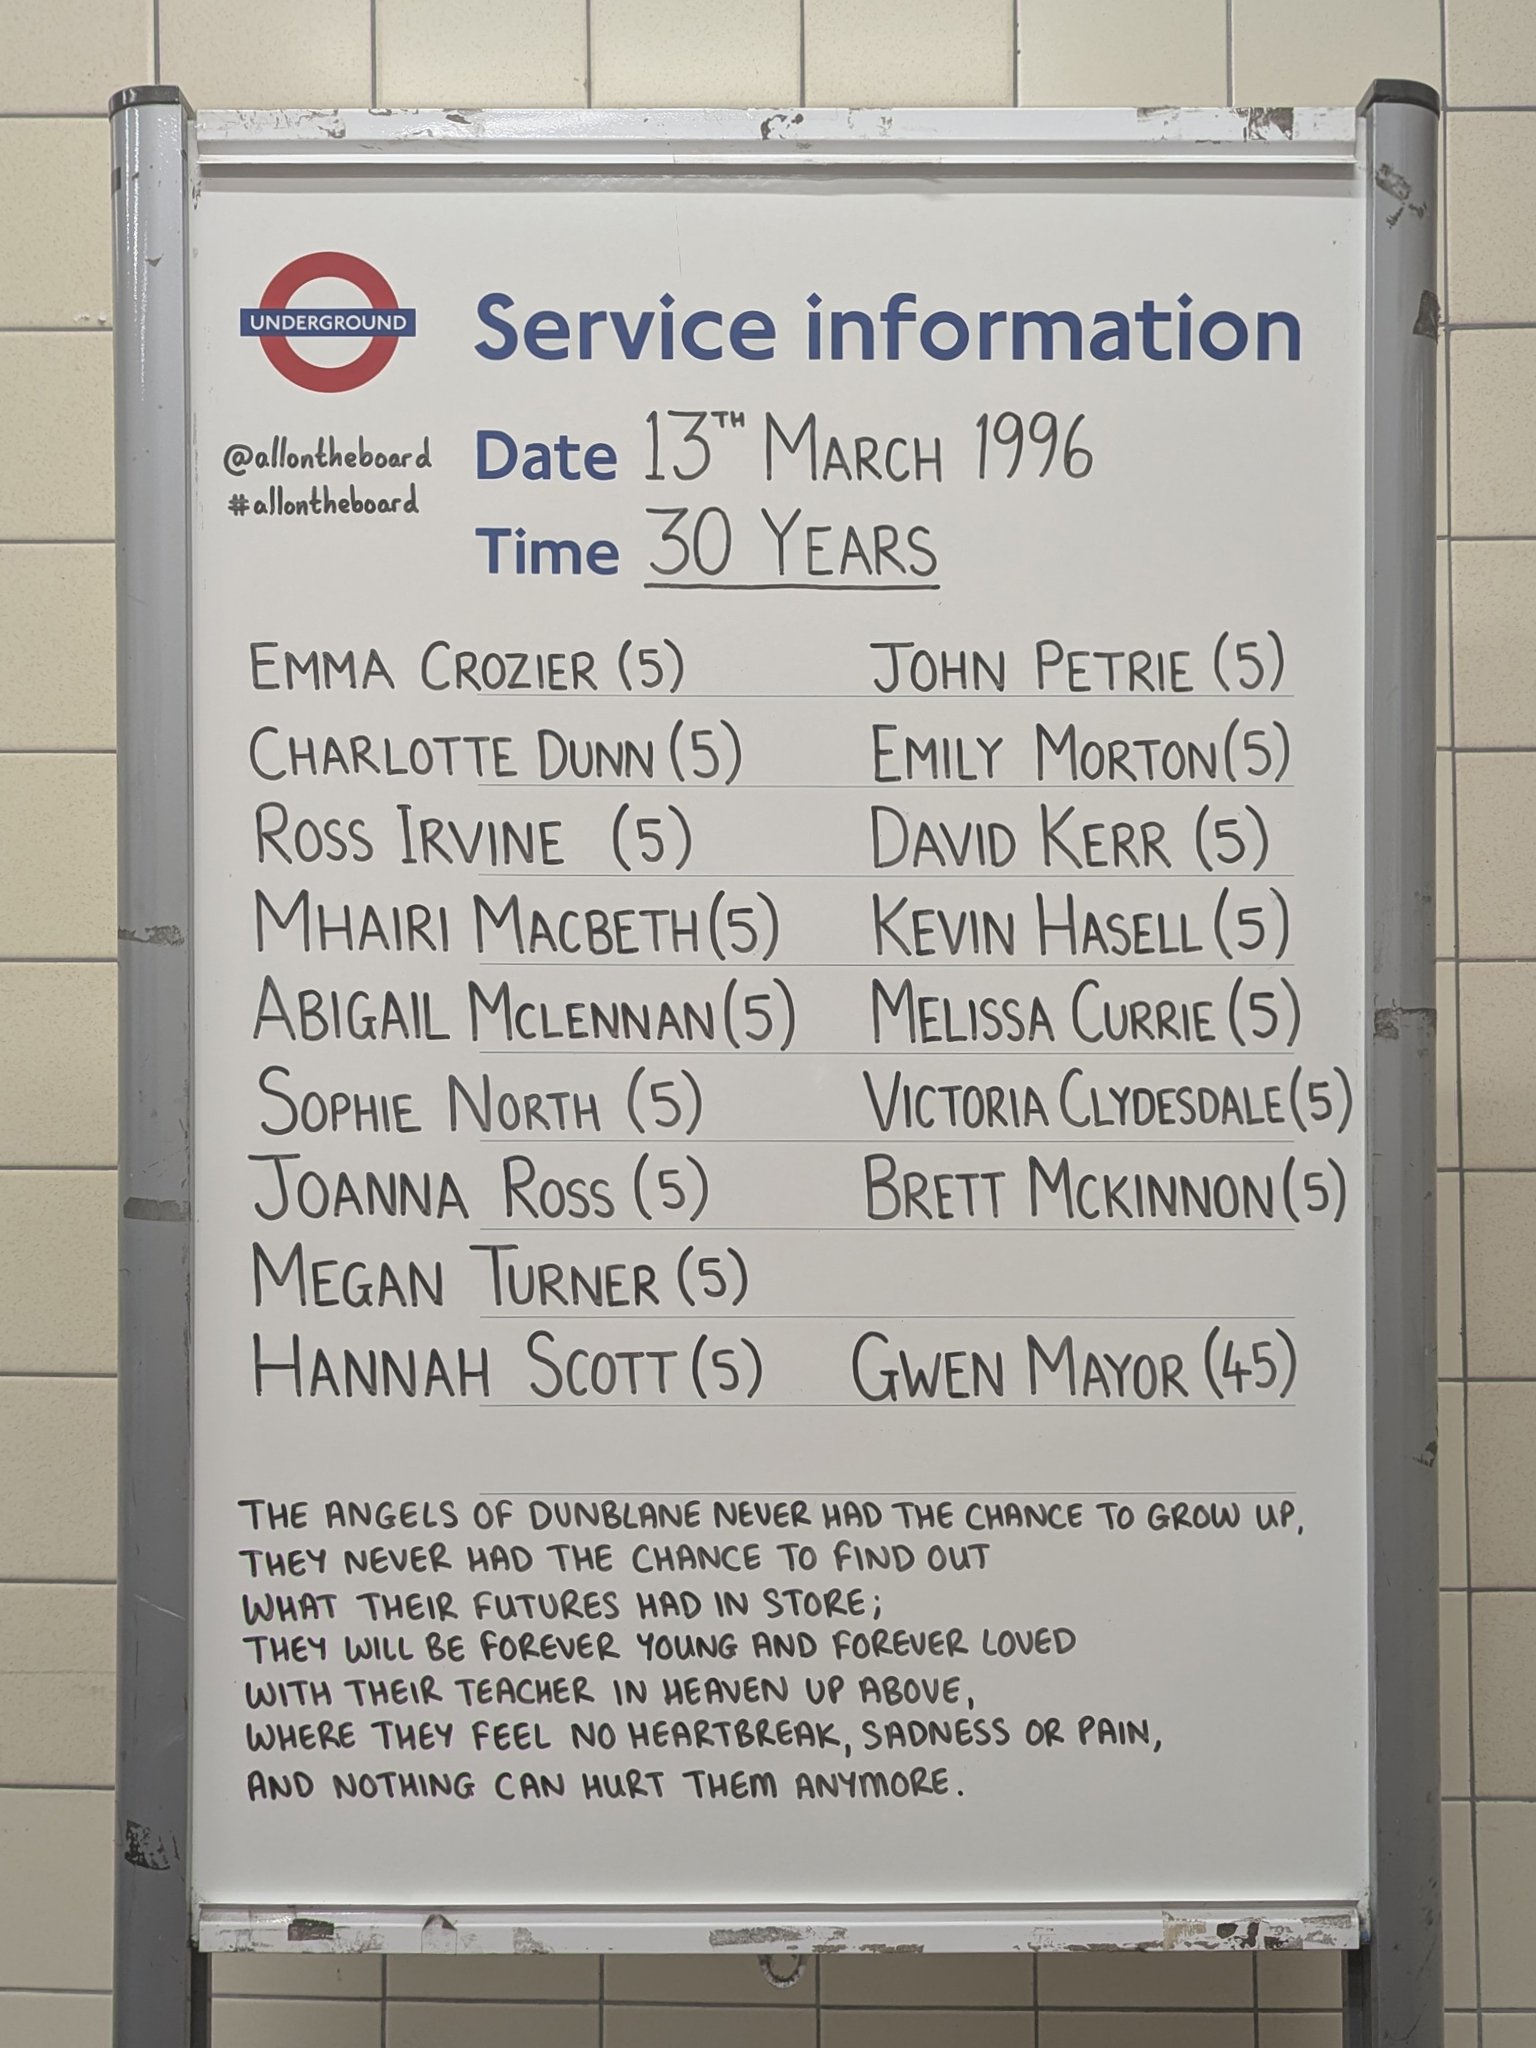 UNDERGROUND
Service information
@allontheboard
#allontheboard
Date 13TH MARCH 1996
Time 30 YEARS
EMMA CROZIER (5) JOHN PETRIE (5)
CHARLOTTE DUNN (5) EMILY MORTON (5)
ROSS IRVINE (5) DAVID KERR (5)
MHAIRI MACBETH (5) KEVIN HASELL (5)
ABIGAIL MCLENNAN (5) MELISSA CURRIE (5)
SOPHIE NORTH (5) VICTORIA CLYDESDALE (5)
JOANNA ROSS (5) BRETT MCKINNON (5)
MEGAN TURNER (5)
HANNAH SCOTT (5) GWEN MAYOR (45)
THE ANGELS OF DUNBLANE NEVER HAD THE CHANCE TO GROW UP,
THEY NEVER HAD THE CHANCE TO FIND OUT
WHAT THEIR FUTURES HAD IN STORE;
THEY WILL BE FOREVER YOUNG AND FOREVER LOVED
WITH THEIR TEACHER IN HEAVEN UP ABOVE,
WHERE THEY FEEL NO HEARTBREAK, SADNESS OR PAIN,
AND NOTHING CAN HURT THEM ANYMORE.